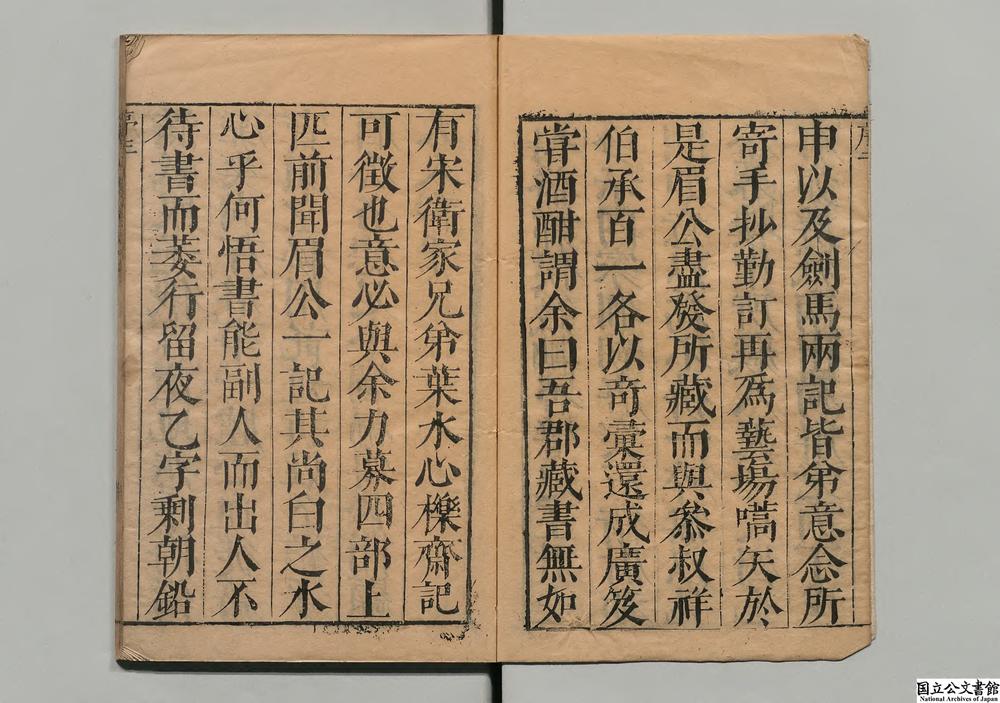 申以及劍馬兩記皆弟意念所
寄手抄勤訂再為藝場嚆矢於
是眉公盡發所藏而與參叔祥
伯承百一各以奇彚還成廣笈
嘗酒酣謂余曰吾郡藏書無如
有宋衛家兄弟葉水心櫟齋記
可徵也意必與余力募四部上
匹前聞眉公一記其尚白之水
心乎何悟書能副人而出人不
待書而萎行留夜乙字剩朝鉛
国立公文書館
National Archives of Japan